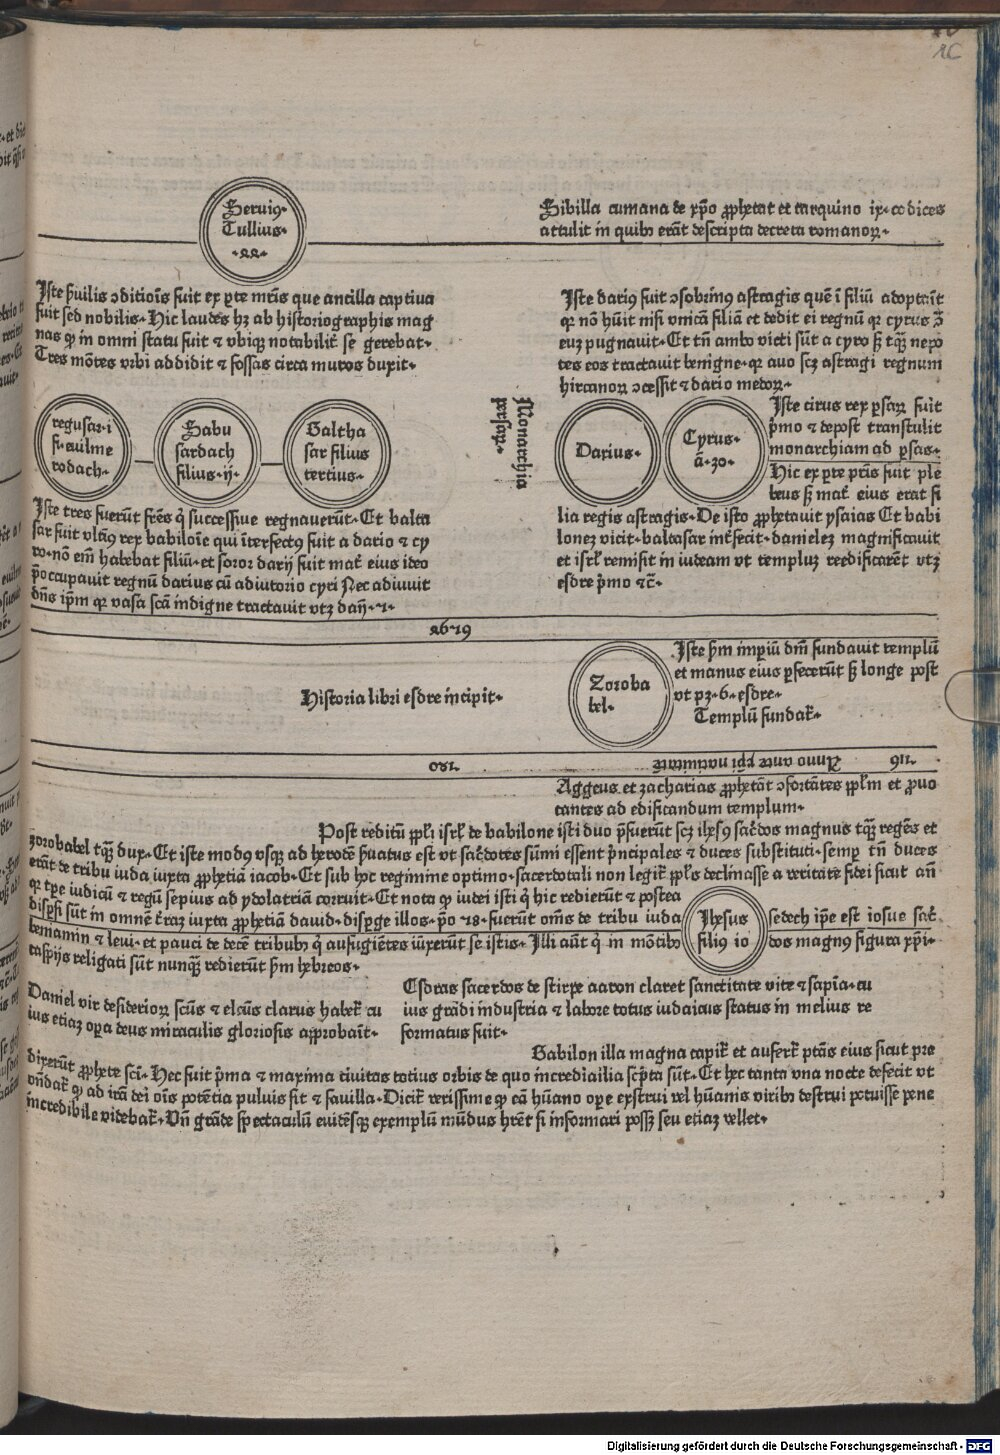 Seruiꝰ·
Tullius·
·44·
Sibilla cumana de xp̄o ꝓphetat et tarquino ix·codices
attulit in quibꝫ erāt descripta decreta romanoꝝ·
Iste h̄uilis ꝯditiōis fuit ex ꝑte mr̄is que ancilla captiua
fuit sed nobilis·Hic laudes hꝫ ab historiographis mag
nas ꝙ in omni statu fuit ⁊ vbiqꝫ notabilit̄ se gerebat·
Tres mōtes vrbi addidit ⁊ fossas circa muros duxit·
Iste dariꝰ fuit ꝯsobrinꝰ astragis quē ī filiū adoptaūt
qꝛ nō hūit nisi vnicā filiā et dedit ei regnū qꝛ cyrus ꝯ̄
euꝫ pugnauit·Et tn̄ ambo victi sūt a cyro sꝫ tqꝫ nepo
tes eos tractauit benigne·qꝛ auo scꝫ astragi regnum
hircanoꝝ ꝯcessit ⁊ dario medoꝝ·
regusar·i
fi·euilme
rodach·
Sabu
sardach
filius·ij·
Baltha
sar filius
tertius·
Monarchia
persaꝝ·
Darius·
Cyrus·
ā·30·
Iste cirus rex ꝑsaꝝ fuit
p̄mo ⁊ depost transtulit
monarchiam ad ꝑsas·
Hic ex ꝑte pr̄is fuit ple
beus sꝫ mat̄ eius erat fi
lia regis astragis·De isto ꝓphetauit ysaias Et babi
loneꝫ vicit·baltasar int̄fecit·danieleꝫ magnificauit
et isrl̄ remisit in iudeam vt templuꝫ reedificarēt vtꝫ
esdre p̄mo ⁊c̄·
Iste tres fuerūt fr̄es qͥ successiue regnauerūt·Et balta
sar fuit vltīꝰ rex babiloīe qui īterfectꝰ fuit a dario ⁊ cy
ro·nō em̄ habebat filiū·et soror darij fuit mat̄ eius ideo
p̄occupauit regnū darius cū adiutorio cyri Nec adiuuit
dn̄s ip̄m qꝛ vasa scā indigne tractauit vtꝫ dan̄·1·
4679
Historia libri esdre incipit·
Zoroba
bel·
Iste s̄m imꝑiū dn̄i fundauit templū
et manus eius ꝑfecerūt sꝫ longe post
vt pꝫ·6·esdre·
Templū fundat̄·
Anno ante xp̄i natiuitatē
Aggeus et zacharias ꝓphetāt ꝯfortātes ppl̄m et ꝓuo
cantes ad edificandum templum·
Post reditū ppl̄i isrl̄ de babilone isti duo p̄fuerūt scꝫ ihꝫsꝰ sac̄dos magnus tqꝫ regēs et
zorobabel tqꝫ dux·Et iste modꝰ vsqꝫ ad herodē ẜuatus est vt sac̄dotes sūmi essent p̄ncipales ⁊ duces substituti·semꝑ tn̄ duces
erāt de tribu iuda iuxta ꝓphetiā iacob·Et sub hoc regimine optimo·sacerdotali non legit̄ ppl̄s declinasse a veritate fidei sicut an̄
qꝛ tꝑe iudicū ⁊ regū sepius ad ydolatriā corruit·Et nota ꝙ iudei isti qͥ hic redierūt ⁊ postea
disꝑsi sūt in omnē t̄raꝫ iuxta ꝓphetiā dauid·disꝑge illos·fuerūt om̄s de tribu iuda
beniamin ⁊ leui·et pauci de decē tribubꝫ qͥ aufugiētes iūxerūt se istis·Illi aūt qͥ in mōtibꝫ
caspijs religati sūt nunqꝫ redierūt s̄m hebreos·
Ihesus
filiꝰ io
sedech ip̄e est iosue sac̄
dos magnꝰ figura xp̄i·
Daniel vir desiderioꝝ scūs ⁊ elcūs clarus habet̄ cu
ius etiaꝫ oꝑa deus miraculis gloriosis approbāit·
Esdras sacerdos de stirpe aaron claret sanctitate vite ⁊ sapīa·cu
ius grādi industria ⁊ labore totus iudaicus status in melius re
formatus fuit·
Babilon illa magna capit̄ et aufert̄ ptās eius sicut pre
dixerūt ꝓphete sc̄i·Hec fuit p̄ma ⁊ maxima ciuitas totius orbis de quo incredibilia sc̄pta sūt·Et hec tanta vna nocte defecit vt
on̄dat̄ ꝙ ad irā dei oīs potētia puluis sit ⁊ fauilla·Dicit̄ verissime ꝙ eā hūano oꝑe exstrui vel hūanis viribꝫ destrui potuisse pene
incredibile videbat̄·Vn̄ grāde spectaculū euidēsqꝫ exemplū mūdus hr̄et si informari possꝫ seu etiaꝫ vellet·
Digitalisierung gefördert durch die Deutsche Forschungsgemeinschaft - DFG